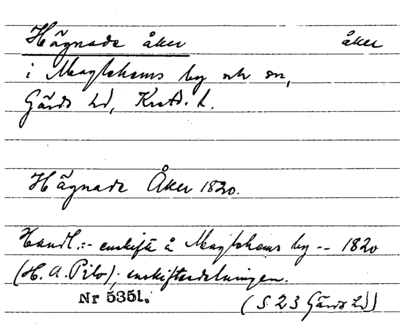 Hägnade åker åker
i Maglehems by och sn,
Gärds hd, Krist. l.
Hägnade Åker 1820.
Handl.:- enskifte å Maglehems by -- 1820
(H. A. Pihl); enskiftesdelningen.
Nr 5351.
(S 23 Gärds hd)